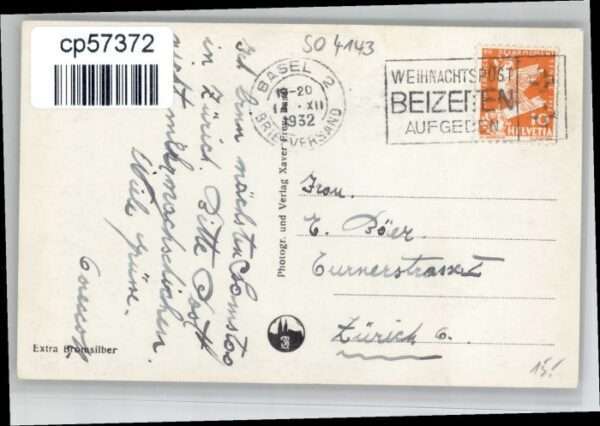 cp57372
SO 4143
BASEL 2
19-20
XII
1932
BRIEFVERSAND
WEIHNACHTSPOST
BEIZEITEN
AUFGEBEN
HELVETIA
Ich bin nächsten Samstag
in Zürich. Bitte Post
nicht mehr nachschicken.
Viele Grüsse.
Photogr. und Verlag Xaver Frey, Basel
Frau.
E. Böer.
Turnerstrasse
Zürich 6.
Extra Bromsilber
15.-